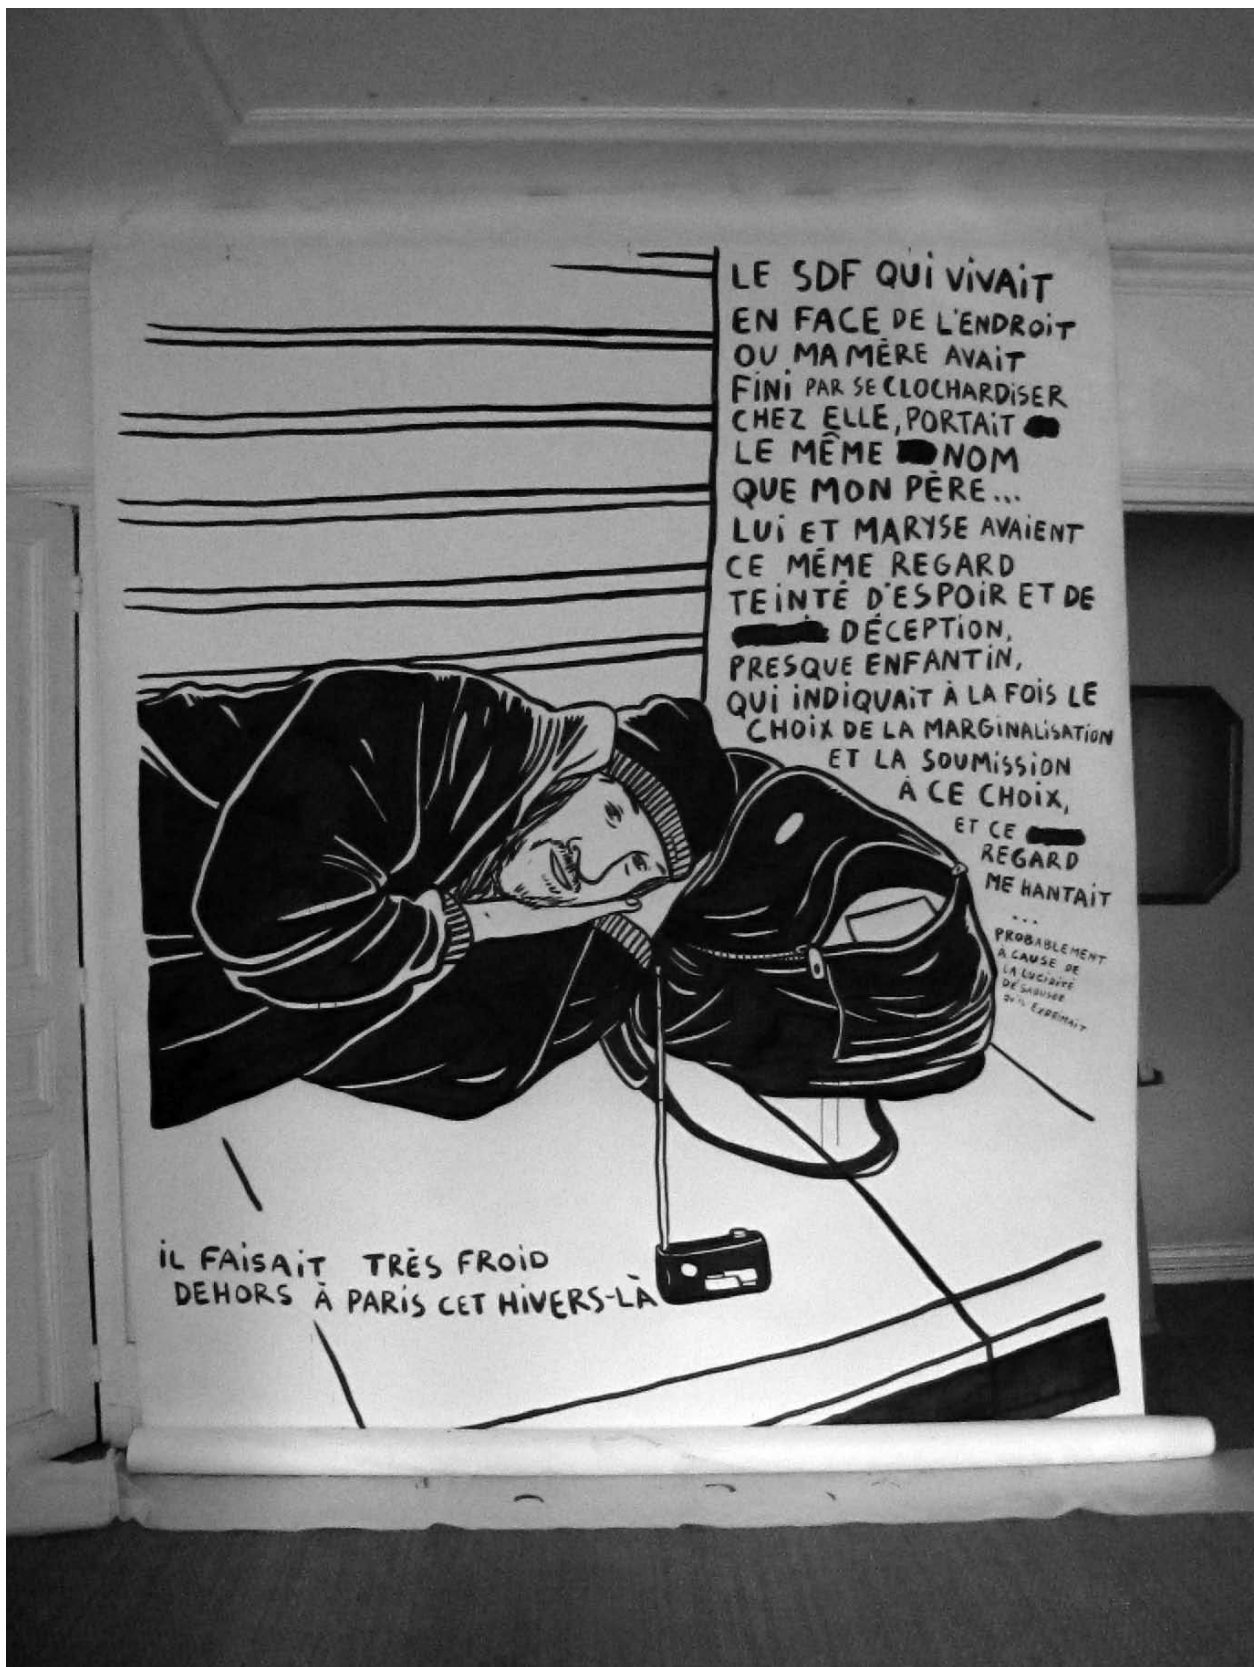 LE SDF QUI VIVAIT
EN FACE DE L'ENDROIT
OU MA MÈRE AVAIT
FINI PAR SE CLOCHARDISER
CHEZ ELLE, PORTAIT
LE MÊME NOM
QUE MON PÈRE...
LUI ET MARYSE AVAIENT
CE MÊME REGARD
TEINTÉ D'ESPOIR ET DE
DÉCEPTION,
PRESQUE ENFANTIN,
QUI INDIQUAIT À LA FOIS LE
CHOIX DE LA MARGINALISATION
ET LA SOUMISSION
À CE CHOIX,
ET CE
REGARD
ME HANTAIT
...
PROBABLEMENT
À CAUSE DE
LA LUCIDITÉ
DÉSABUSÉE
QU'IL EXPRIMAIT
IL FAISAIT TRÈS FROID
DEHORS À PARIS CET HIVERS-LÀ